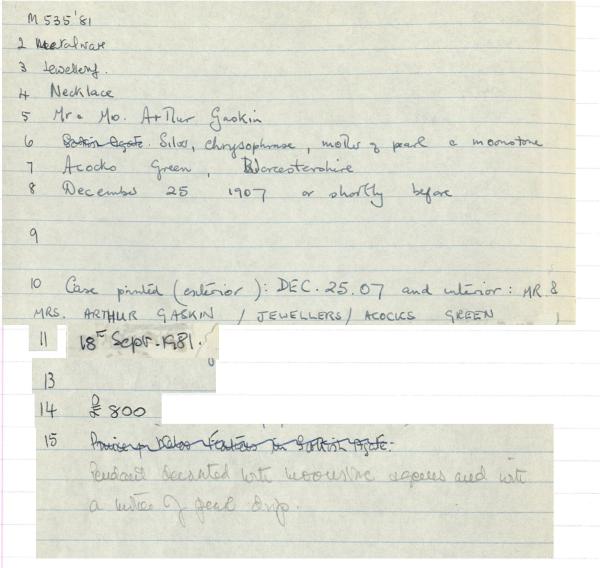 M 535'81
2 Metalware
3 Jewellery.
4 Necklace
5 Mr & Mrs. Arthur Gaskin
6 Silver, chrysophrase, mother of pearl & moonstone
7 Acocks Green, Worcestershire
8 December 25 1907 or shortly before
9
10 Case printed (exterior): DEC. 25. 07 and interior: MR. &
MRS. ARTHUR GASKIN / JEWELLERS / ACOCKS GREEN
11 18th Sept. 1981.
13
14 £800
15
Pendant decorated with moonstone and with
a mother of pearl drop.